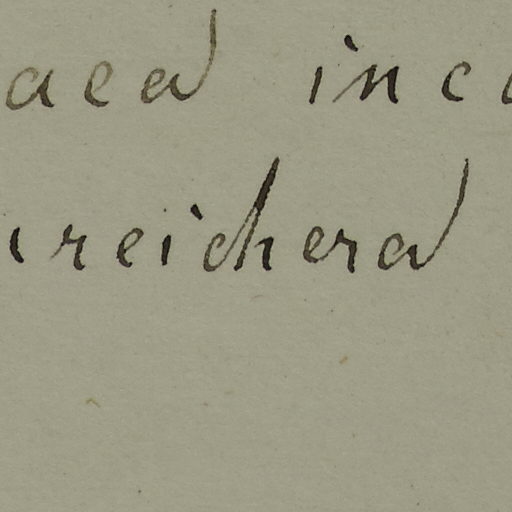 aed inc
reicherd